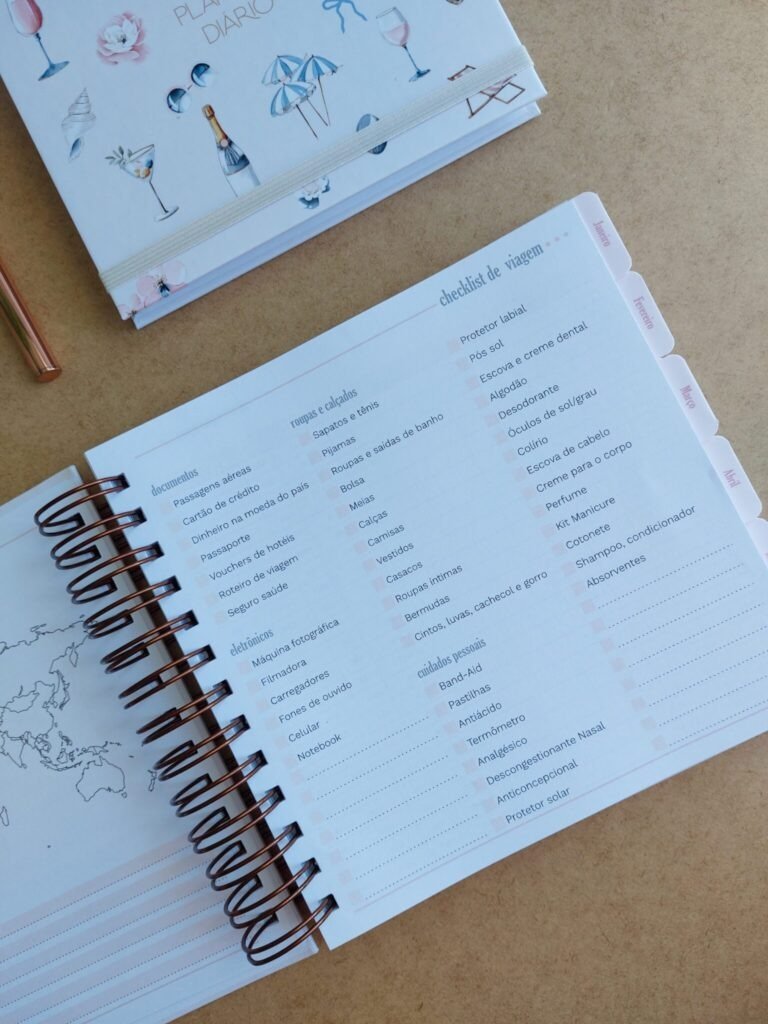 DIÁRIO
checklist de viagem
documentos
Passagens aéreas
Cartão de crédito
Dinheiro na moeda do país
Passaporte
Vouchers de hotéis
Roteiro de viagem
Seguro saúde
eletrônicos
Máquina fotográfica
Filmadora
Carregadores
Fones de ouvido
Celular
Notebook
roupas e calçados
Sapatos e tênis
Pijamas
Roupas e saídas de banho
Bolsa
Meias
Calças
Camisas
Vestidos
Casacos
Roupas íntimas
Bermudas
Cintos, luvas, cachecol e gorro
cuidados pessoais
Band-Aid
Pastilhas
Antiácido
Termômetro
Analgésico
Descongestionante Nasal
Anticoncepcional
Protetor solar
Protetor labial
Pós sol
Escova e creme dental
Algodão
Desodorante
Óculos de sol/grau
Colírio
Escova de cabelo
Creme para o corpo
Perfume
Kit Manicure
Cotonete
Shampoo, condicionador
Absorventes
Janeiro
Fevereiro
Março
Abril